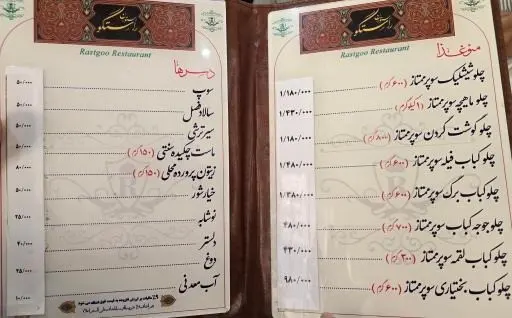 رستوران راستگو
Rastgoo Restaurant
منو غذا
چلو شیشلیک سوپر ممتاز (۶۰۰ گرم) ۱/۱۸۰/۰۰۰
چلو ماهیچه سوپر ممتاز (۱ کیلوگرم) ۱/۴۳۰/۰۰۰
چلو گوشت گردن سوپر ممتاز (۸۰۰ گرم) ۱/۱۸۰/۰۰۰
چلو کباب فیله سوپر ممتاز (۶۰۰ گرم) ۱/۴۸۰/۰۰۰
چلو کباب برگ سوپر ممتاز (۶۰۰ گرم) ۱/۳۸۰/۰۰۰
چلو جوجه کباب سوپر ممتاز (۷۰۰ گرم) ۴۸۰/۰۰۰
چلو کباب لقمه سوپر ممتاز (۳۰۰ گرم) ۴۳۰/۰۰۰
چلو کباب بختیاری سوپر ممتاز (۶۰۰ گرم) ۹۸۰/۰۰۰
رستوران راستگو
Rastgoo Restaurant
دسرها
سوپ ۵۰/۰۰۰
سالاد فصل ۵۰/۰۰۰
سیر ترشی ۵۰/۰۰۰
ماست چکیده سنتی (۱۵۰ گرم) ۵۰/۰۰۰
زیتون پرورده محلی (۱۵۰ گرم) ۸۰/۰۰۰
خیارشور ۵۰/۰۰۰
نوشابه ۲۵/۰۰۰
دلستر ۴۰/۰۰۰
دوغ ۲۵/۰۰۰
آب معدنی ۱۰/۰۰۰
۹٪ مالیات بر ارزش افزوده به قیمت فوق اضافه می شود